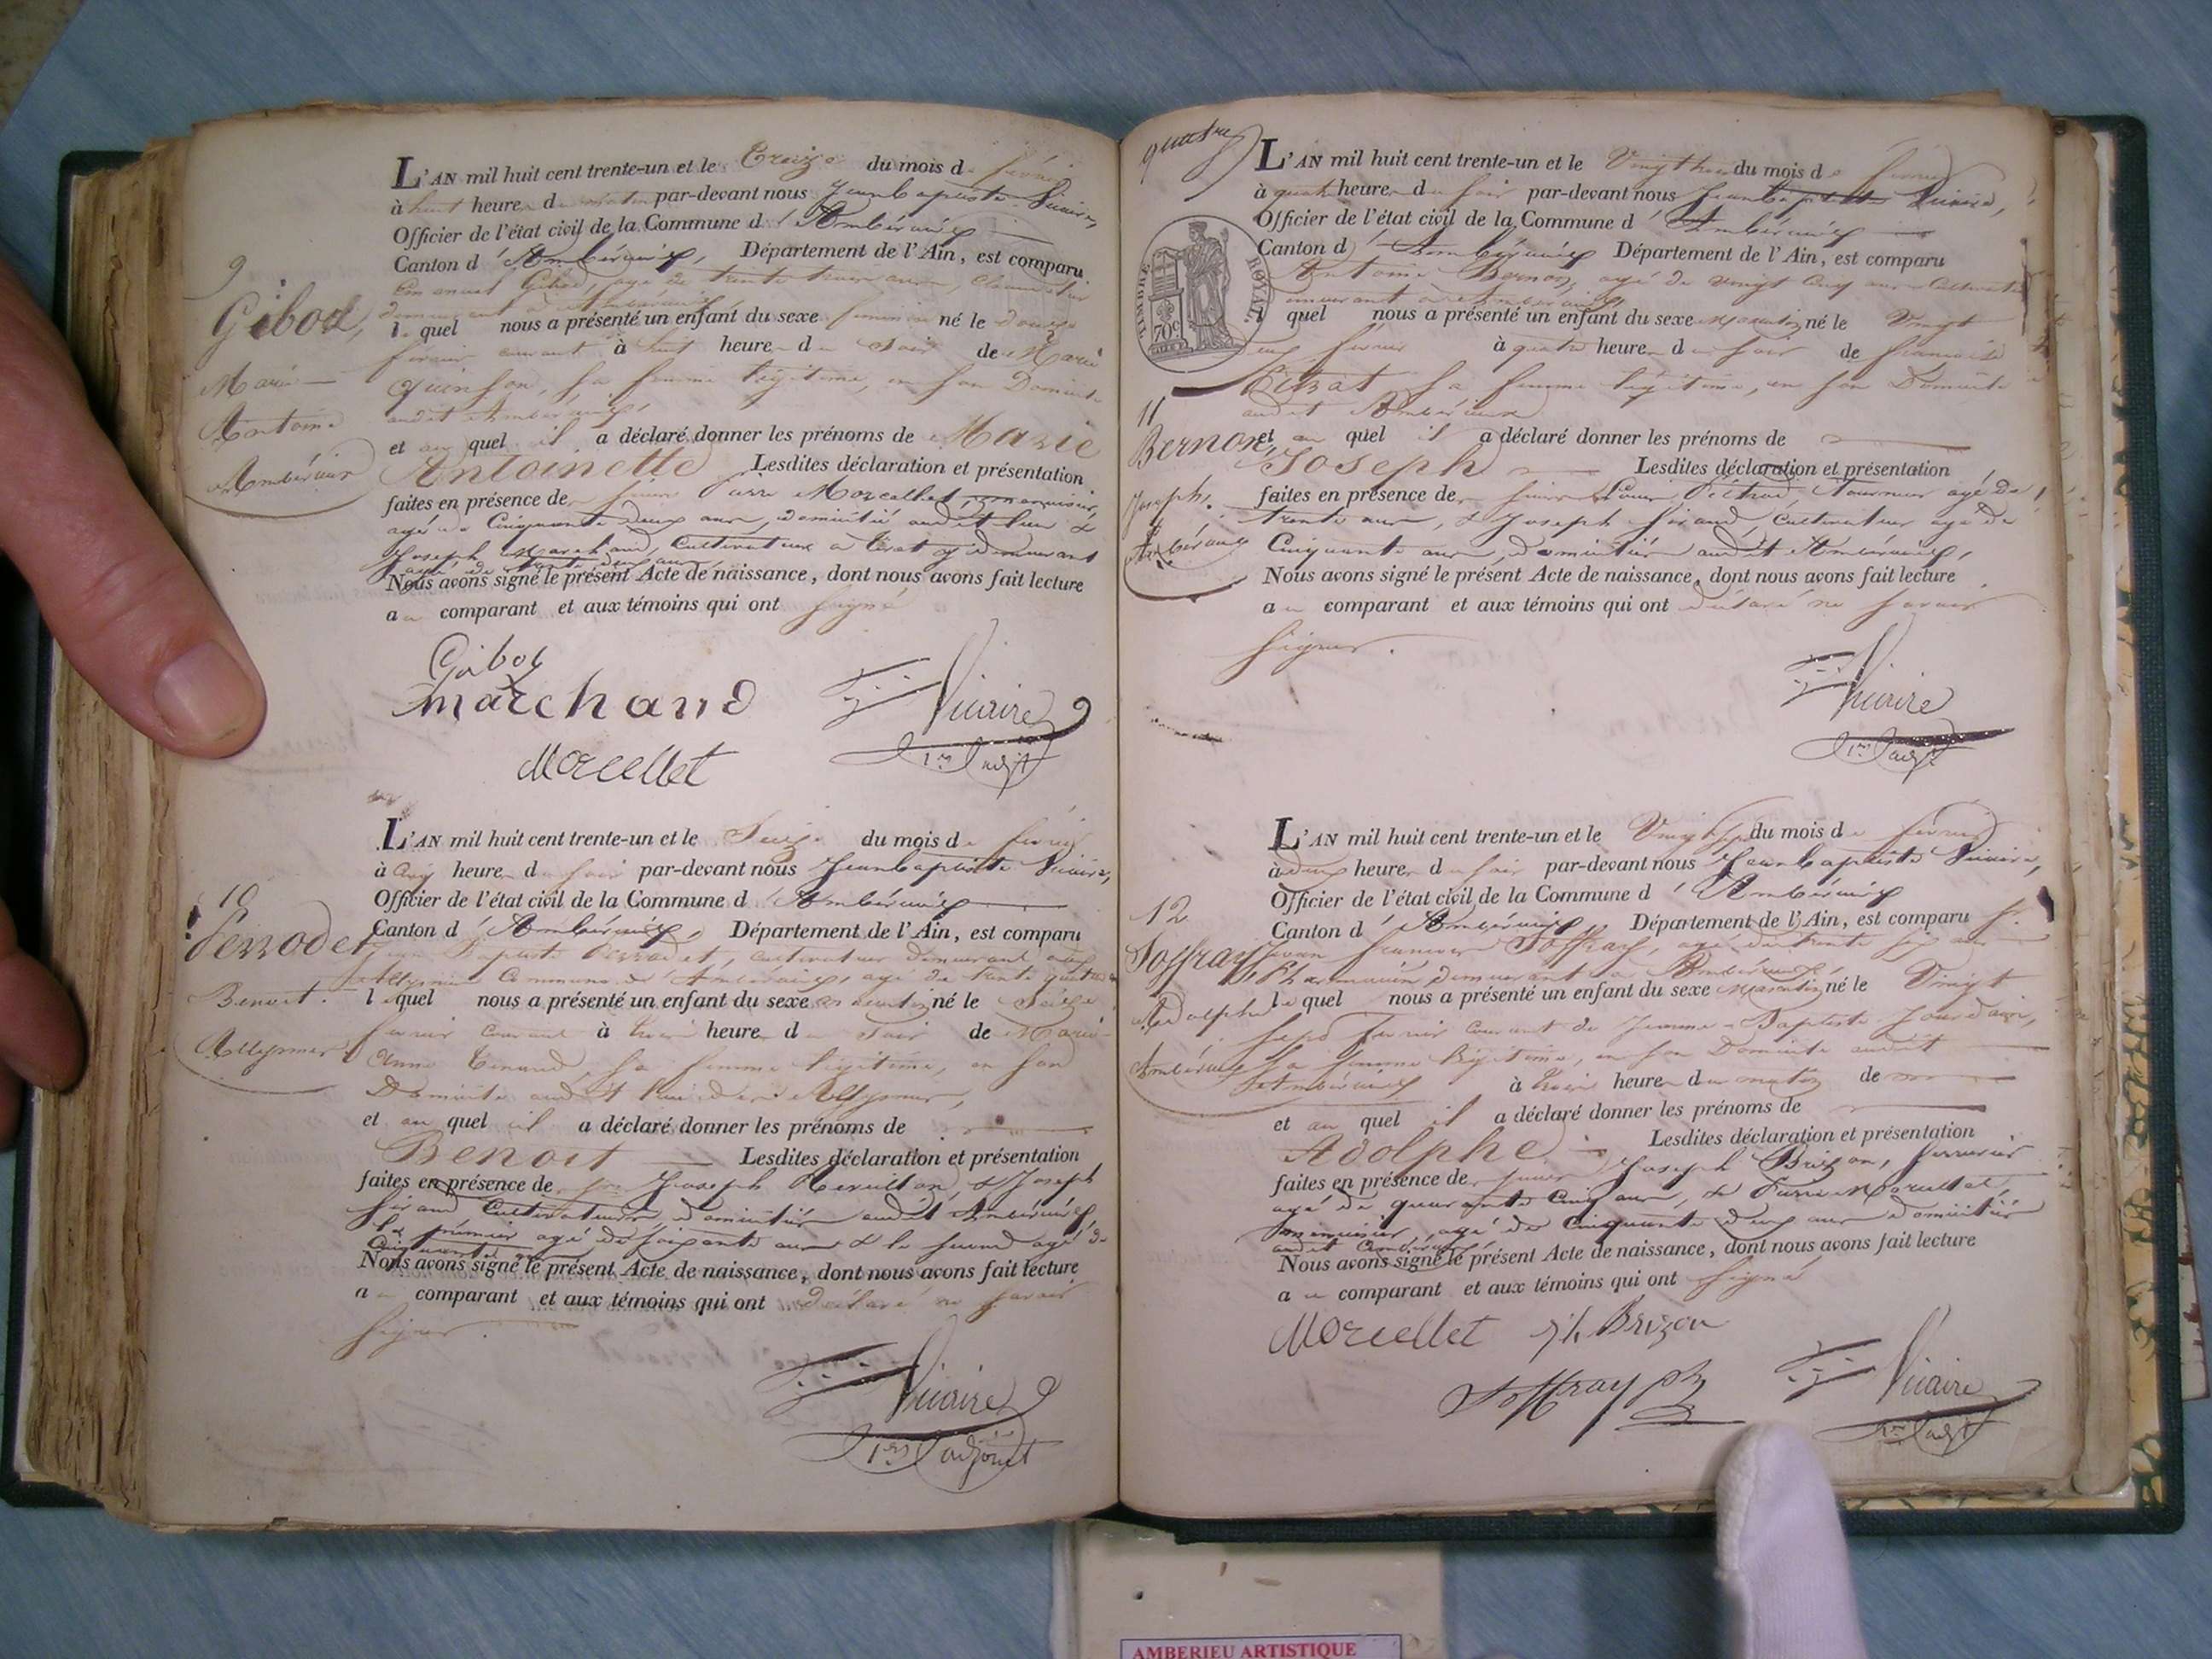 9
Gibod,
Marie
Antoine
Ambérieux
L'AN mil huit cent trente-un et le Treize du mois de février
à huit heure du matin par-devant nous Jean Baptiste Vicaire,
Officier de l'état civil de la Commune d'Ambérieux
Canton d'Ambérieux, Département de l'Ain, est comparu
Gibod, agé de trente trois ans,
demeurant à Ambérieux
lequel nous a présenté un enfant du sexe féminin né le douze
février courant à huit heure du soir de Marie
Quinson, sa femme légitime, en son Domicile
audit Ambérieux,
et au quel il a déclaré donner les prénoms de Marie
Antoinette Lesdites déclaration et présentation
faites en présence de sieurs Pierre Morcellet, menuisier,
agé de Cinquante deux ans, domicilié audit lieu &
Joseph Marchand, Cultivateur à demeurant
Nous avons signé le présent Acte de naissance, dont nous avons fait lecture
au comparant et aux témoins qui ont signé
Gibod
Marchand
Morcellet
Vicaire
1er adjt
10
Perrodet
Benoit.
Allymes
L'AN mil huit cent trente-un et le Seize du mois de février
à cinq heure du soir par-devant nous Jean Baptiste Vicaire,
Officier de l'état civil de la Commune d'Ambérieux
Canton d'Ambérieux, Département de l'Ain, est comparu
Jean Baptiste Perrodet, cultivateur demeurant aux
Allymes Commune d'Ambérieux, agé de trente quatre
lequel nous a présenté un enfant du sexe masculin né le Seize
février courant à trois heure du soir de Marie
Anne sa femme légitime, en son
Domicile audit lieu des Allymes,
et au quel il a déclaré donner les prénoms de
Benoit Lesdites déclaration et présentation
faites en présence de Joseph & Joseph
Cultivateurs domiciliés audit Ambérieux
Le premier agé de soixante ans & le second agé de
Cinquante
Nous avons signé le présent Acte de naissance, dont nous avons fait lecture
au comparant et aux témoins qui ont déclaré ne savoir
signer.
Vicaire
1er adjoint
quatre
TIMBRE ROYAL
70c
11
Bernon,
Joseph.
Ambérieux
L'AN mil huit cent trente-un et le du mois de février
à quatre heure du soir par-devant nous Jean Baptiste Vicaire,
Officier de l'état civil de la Commune d'Ambérieux
Canton d'Ambérieux Département de l'Ain, est comparu
Antoine Bernon, agé de vingt cinq ans Cultivateur
demeurant à Ambérieux,
quel nous a présenté un enfant du sexe masculin né le Vingt
février à quatre heure du soir de françoise
sa femme légitime, en son Domicile
audit Ambérieux
et au quel il a déclaré donner les prénoms de
Joseph Lesdites déclaration et présentation
faites en présence de sieurs agé de
trente ans, & Joseph Cultivateur agé de
Cinquante ans, domiciliés audit Ambérieux,
Nous avons signé le présent Acte de naissance, dont nous avons fait lecture
au comparant et aux témoins qui ont déclaré ne savoir
signer.
Vicaire
1er adjt
12
Joffray,
Adolphe
Ambérieux
L'AN mil huit cent trente-un et le du mois de février
à deux heure du soir par-devant nous Jean Baptiste Vicaire,
Officier de l'état civil de la Commune d'Ambérieux
Canton d'Ambérieux, Département de l'Ain, est comparu Sr.
Jean François Joffray, agé de trente six ans
Pharmacien demeurant à Ambérieux,
lequel nous a présenté un enfant du sexe Masculin né le Vingt
sept février courant de Jeanne-Baptiste Jourdain,
sa femme légitime, en son Domicile audit
Ambérieux à trois heure du matin de
et au quel il a déclaré donner les prénoms de
Adolphe Lesdites déclaration et présentation
faites en présence de sieurs Joseph Brizon,
agé de quarante Cinq ans, & Pierre Morcellet,
menuisier, agé de Cinquante deux ans domiciliés
audit Ambérieux
Nous avons signé le présent Acte de naissance, dont nous avons fait lecture
au comparant et aux témoins qui ont signé
Morcellet Jh. Brizon
Joffray ph
Vicaire
1er adjt
AMBERIEU ARTISTIQUE